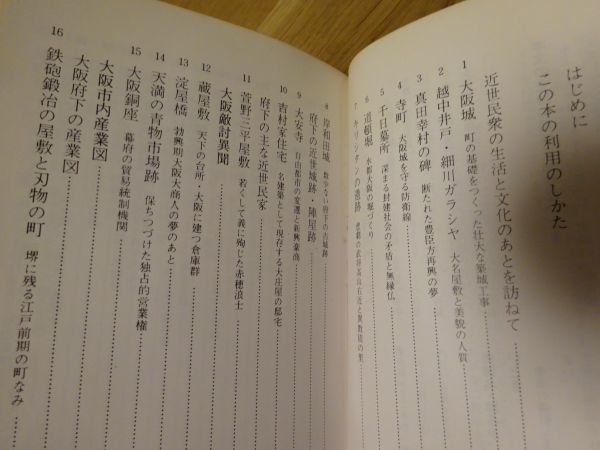 はじめに
この本の利用のしかた
近世民衆の生活と文化のあとを訪ねて
1 大阪城 町の基礎をつくった壮大な築城工事
2 越中井戸・細川ガラシヤ 大名屋敷と美貌の人質
3 真田幸村の碑 断たれた豊臣方再興の夢
4 寺町 大阪城を守る防衛線
5 千日墓所 深まる封建社会の矛盾と無縁仏
6 道頓堀 水都大阪の堀づくり
7 キリシタンの遺跡 悲劇の武将高山右近と異教徒の里
8 岸和田城 数少ない府下の古城跡
府下の近世城跡・陣屋跡
9 大安寺 自由都市の変遷と新興豪商
10 吉村家住宅 名建築として現存する大庄屋の邸宅
府下の主な近世民家
11 萱野三平屋敷 若くして義に殉じた赤穂浪士
大阪敵討異聞
12 蔵屋敷 天下の台所・大阪に建つ倉庫群
13 淀屋橋 勃興期大阪大商人の夢のあと
14 天満の青物市場跡 保ちつづけた独占的営業権
15 大阪銅座 幕府の貿易統制機関
大阪市内産業図
大阪府下の産業図
16 鉄砲鍛冶の屋敷と刃物の町 堺に残る江戸前期の町なみ